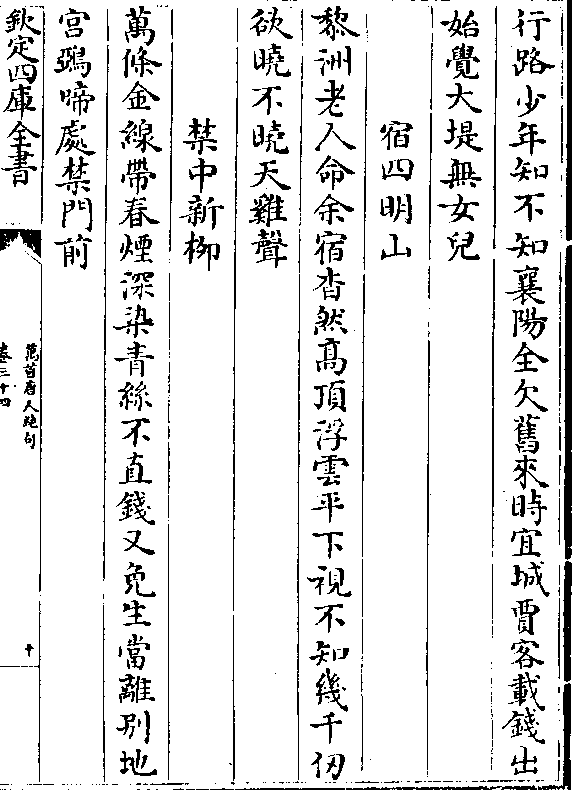 行路少年知不知襄陽全欠舊來時宜城賈客載錢出
始覺大堤無女兒
宿四明山
黎洲老人命余宿杳然高頂浮雲平下視不知幾千仞
欲曉不曉天雞聲
禁中新柳
萬條金線帶春煙深染青絲不直錢又免生當離別地
宮鵶啼處禁門前
欽定四庫全書
萬首唐人絶句
卷三十四
十